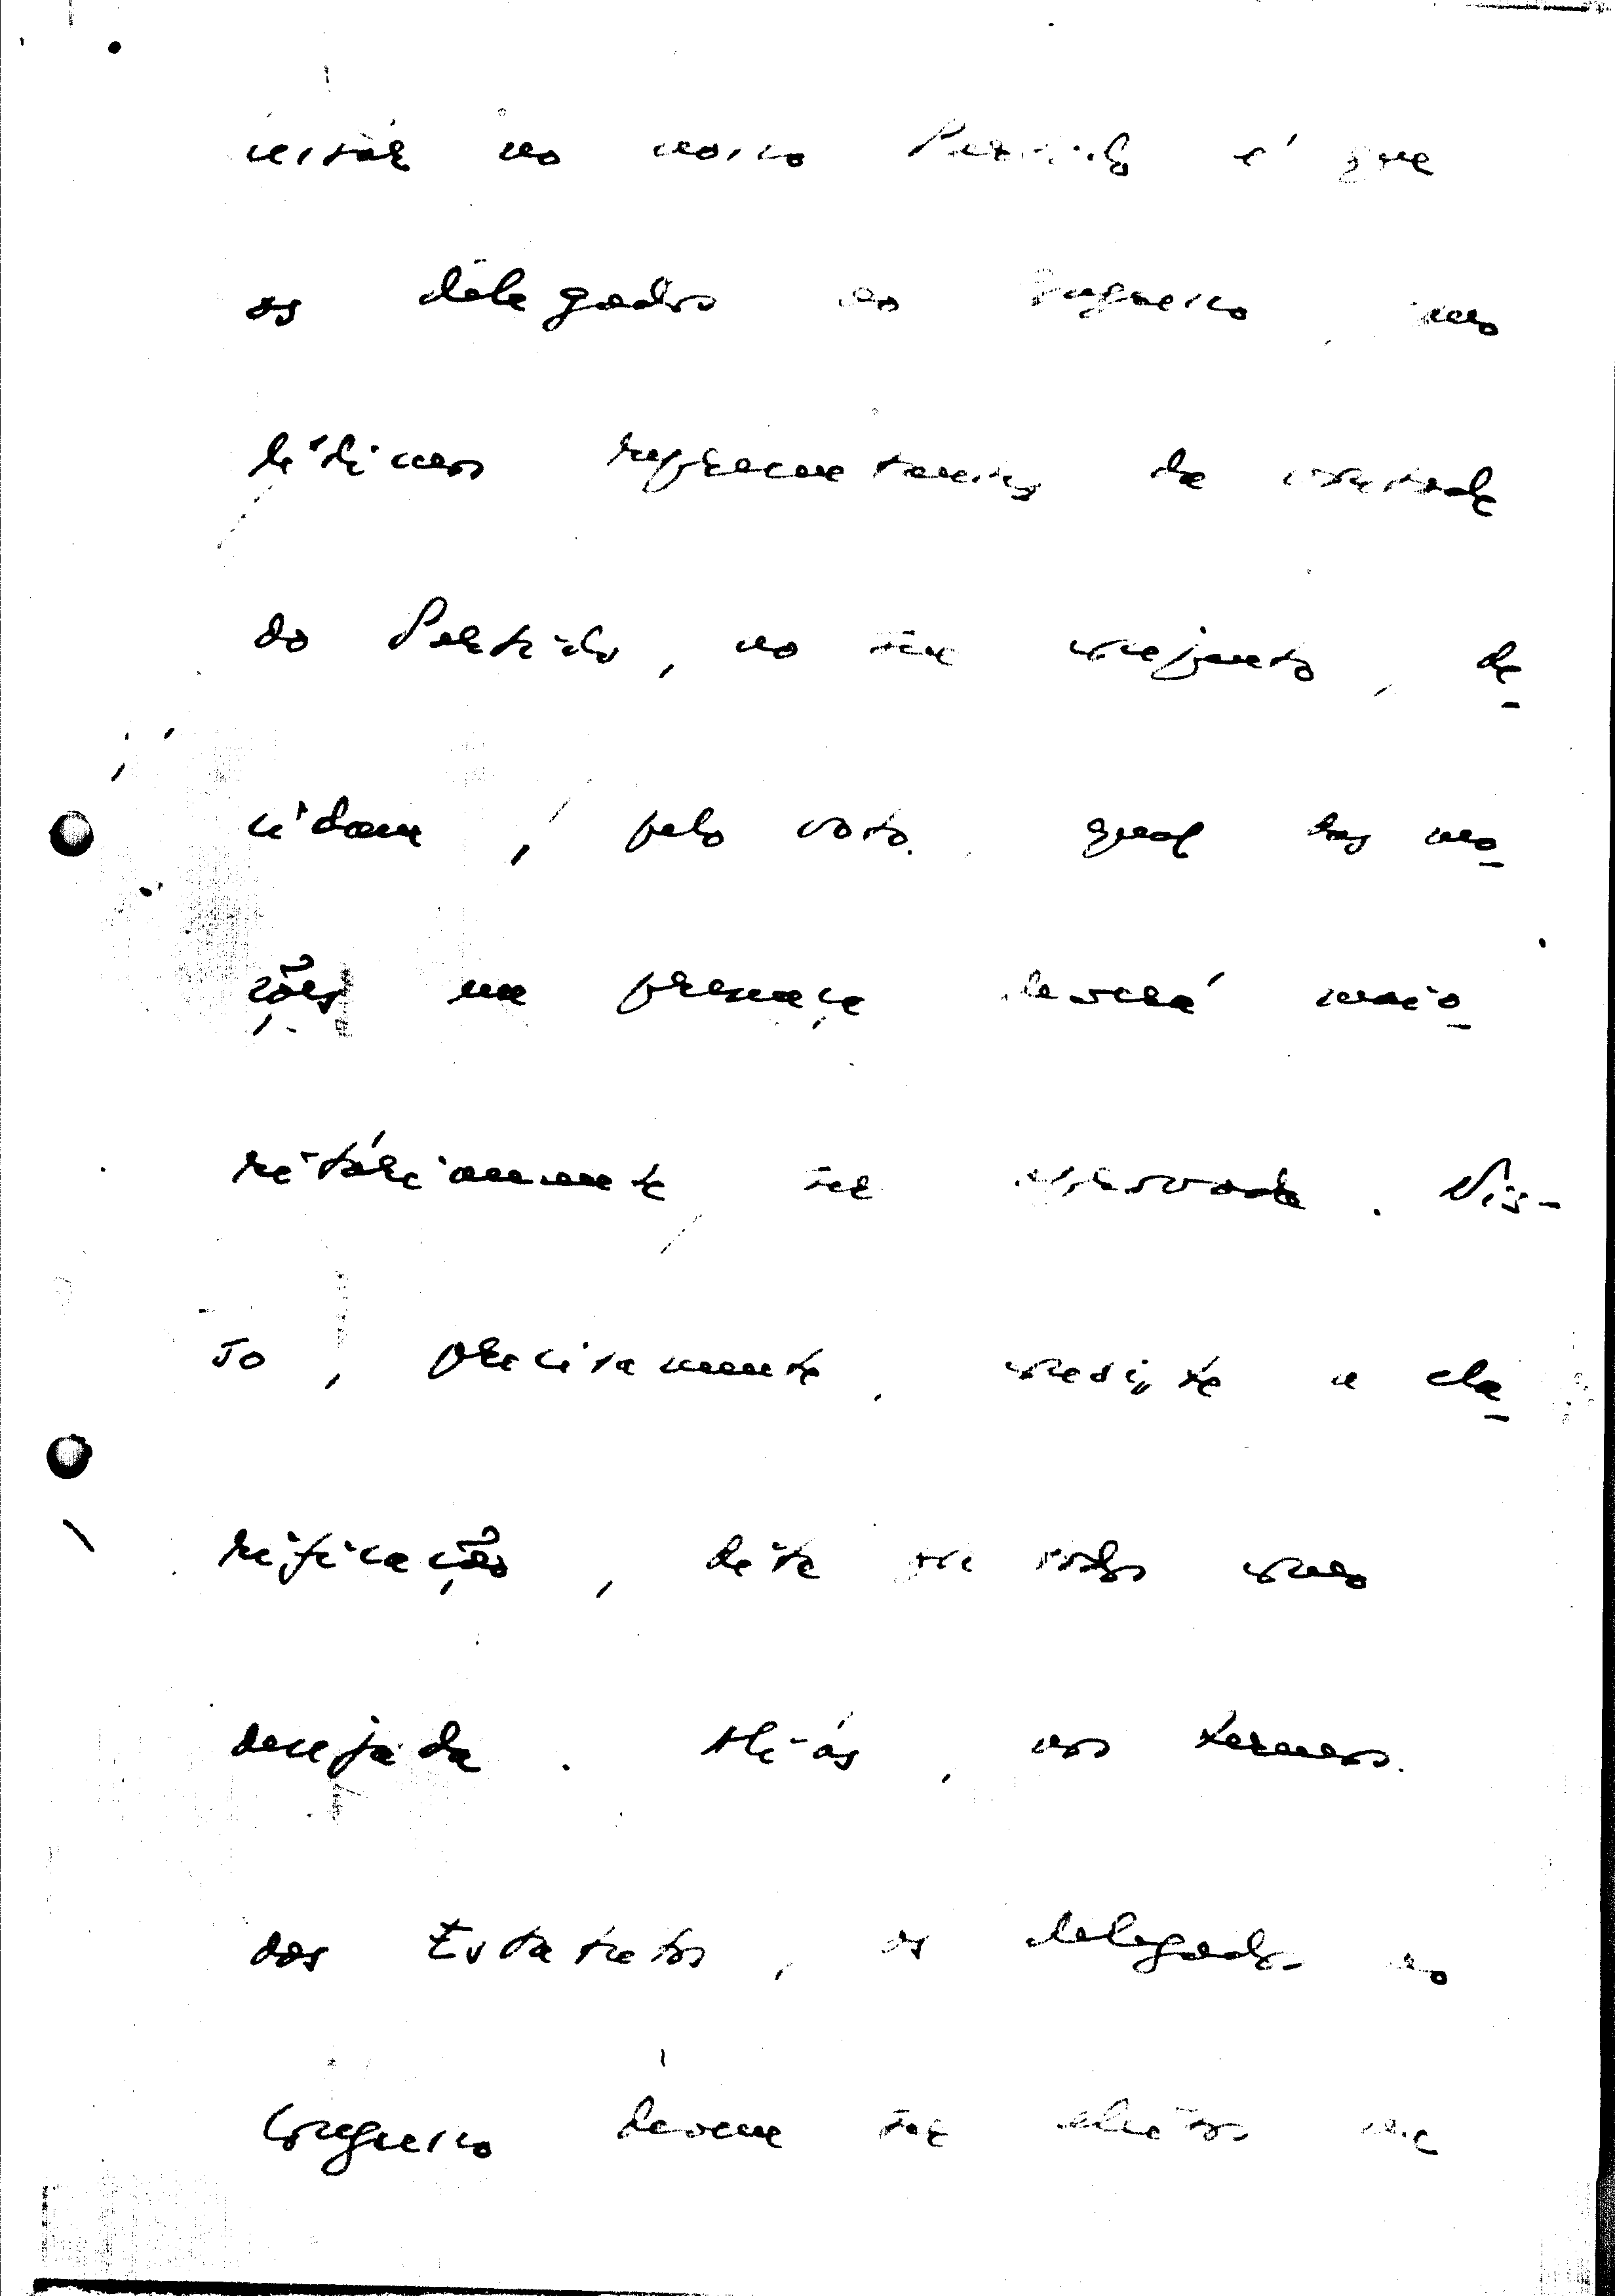 nistar no nosso Partido é que
os delegados ao Congresso, uns
legítimos representantes da vontade
do Partido, no seu conjunto, de_
cidam, pelo voto, qual das mo_
ções em presença deverá maio_
ritáriamente ser aprovada. Nis-
so, precisamente, consiste a cla_
rificação, dita por todos como
desejada. Aliás, nos termos
dos Estatutos, os delegados ao
Congresso devem ser eleitos em